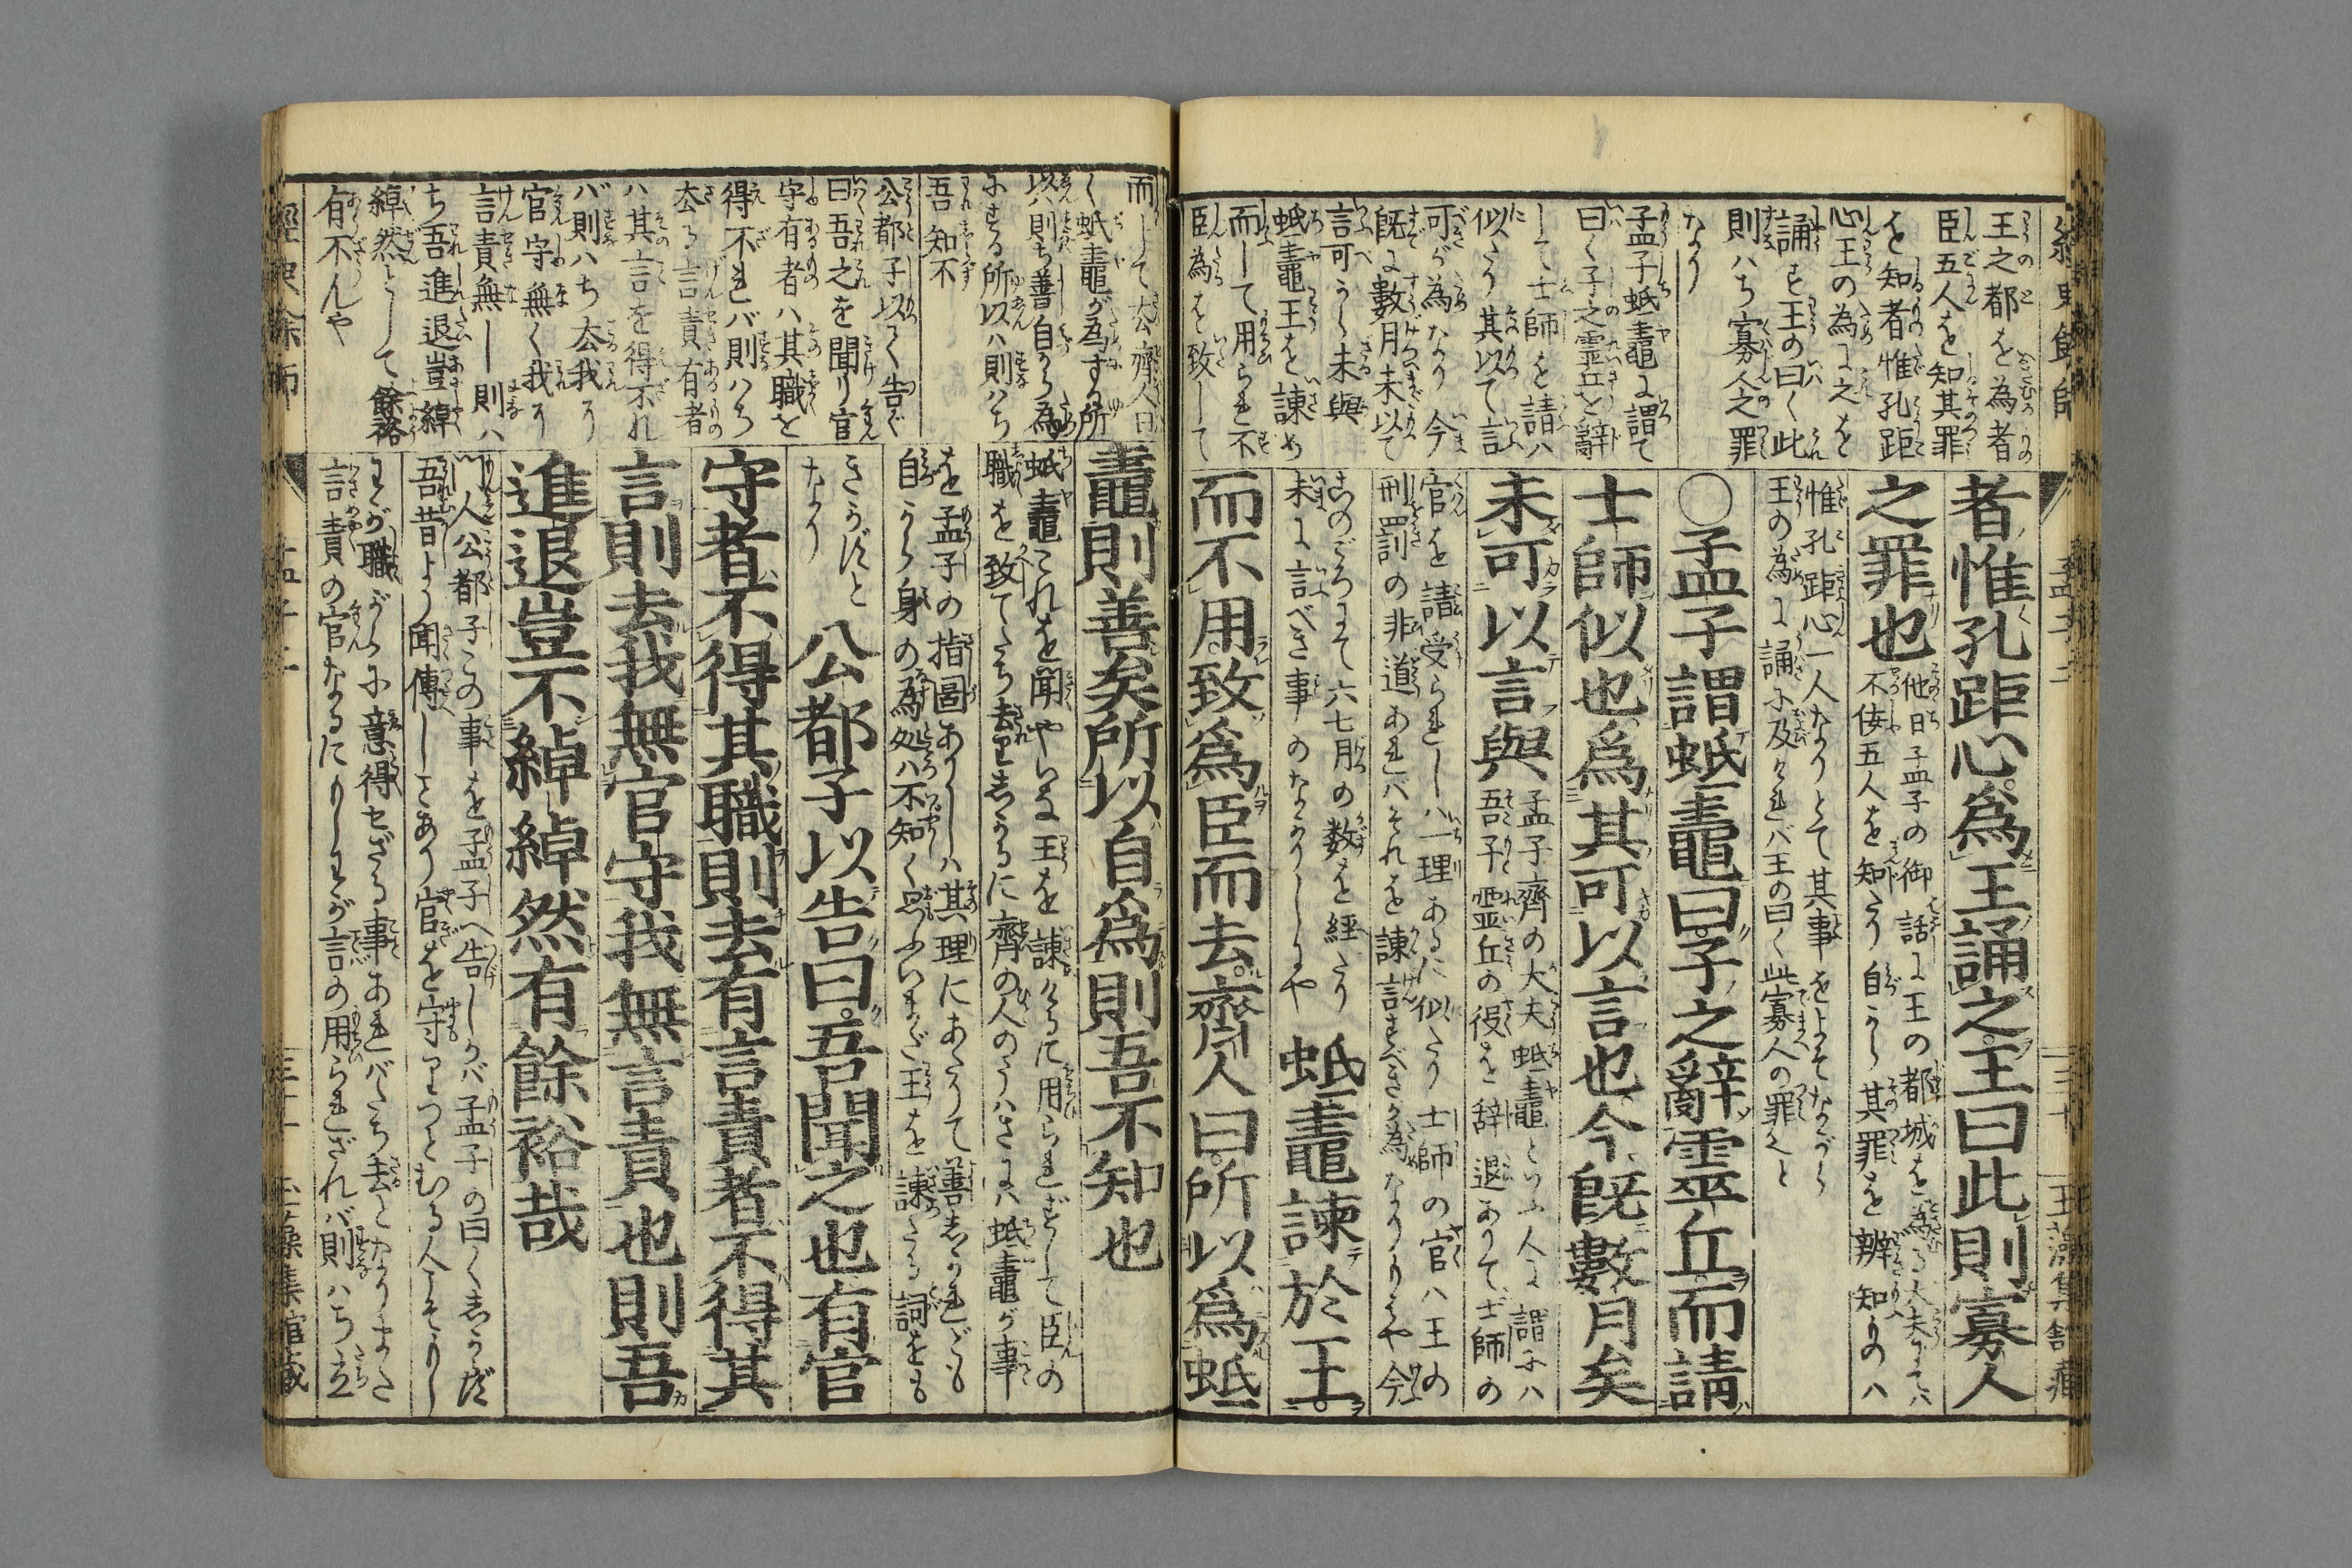 經史餘師
孟子二
三十
玉藻集舘藏
王之都を為者
臣五人を知其罪
を知者惟孔距
心王の為に之を
誦す王の曰く此
則ハち寡人之罪
なり
孟子蚳鼃に謂て
曰く子之靈丘を辭
して士師を請ハ
似たり其以て言
可が為なり今
既に數月未以て
言可らく未與
蚳鼃王を諌め
而して用られ不
臣為を致して
者惟孔距心爲王誦之王曰此則寡人
之罪也
他日孟子の御話に王の都城を為る大夫にてハ
不佞五人を知たり自から其罪を辨知りのハ
惟孔距心一人なりとて其事をよそながら
王の為に誦に及けれバ王の曰く此寡人の罪と
〇孟子謂蚳鼃曰子之辭靈丘而請
士師似也爲其可以言也今既數月矣
未可以言與
孟子齊の大夫蚳鼃といふ人に謂にハ
吾子靈丘の役を辞退ありて士師の
官を請受られしハ一理あるに似たり士師の官ハ王の
刑罰の非道あれバそれを諌言すべきが為なりけりや今
このごろまて六七月の数を経たり
未に言べき事のなかりしにや
蚳鼃諌於王
而不用致爲臣而去齊人曰所以爲蚳
而して去齊人曰
く蚳鼃が為する所
以ハ則ち善自から為
にする所以ハ則ハち
吾知不
公都子以て告ぐ
曰吾之を聞り官
守有者ハ其職を
得不れバ則ハち
去る言責有者
ハ其言を得不れ
バ則ハち去我り
官守無く我り
言責無し則ハ
ち吾進退豈綽
綽然として餘裕
有不んや
鼃則善矣所以自爲則吾不知也
蚳鼃これを聞やいな王を諌けるに用られずして臣の
職を致てたち去りしかるに齊の人のうハさにハ蚳鼃が事
を孟子の指圖ありしハ其理にあたりて善しかれども
自から身の為処ハ不知く思ふいまだ王を諌たる詞をも
きかずと
なり
公都子以告曰吾聞之也有官
守者不得其職則去有言責者不得其
言則去我無官守我無言責也則吾
進退豈不綽綽然有餘裕哉
人公都子この事を孟子へ告しかバ孟子の曰くしかず
吾昔より聞傳しことあり官を守りつとむる人そのし
わが職がらに意得せざる事あれバたち去となりまた
言責の官なるにのしわが言の用られざれバ則ハち立
經史餘師
孟子二
三十一
玉藻集舘藏